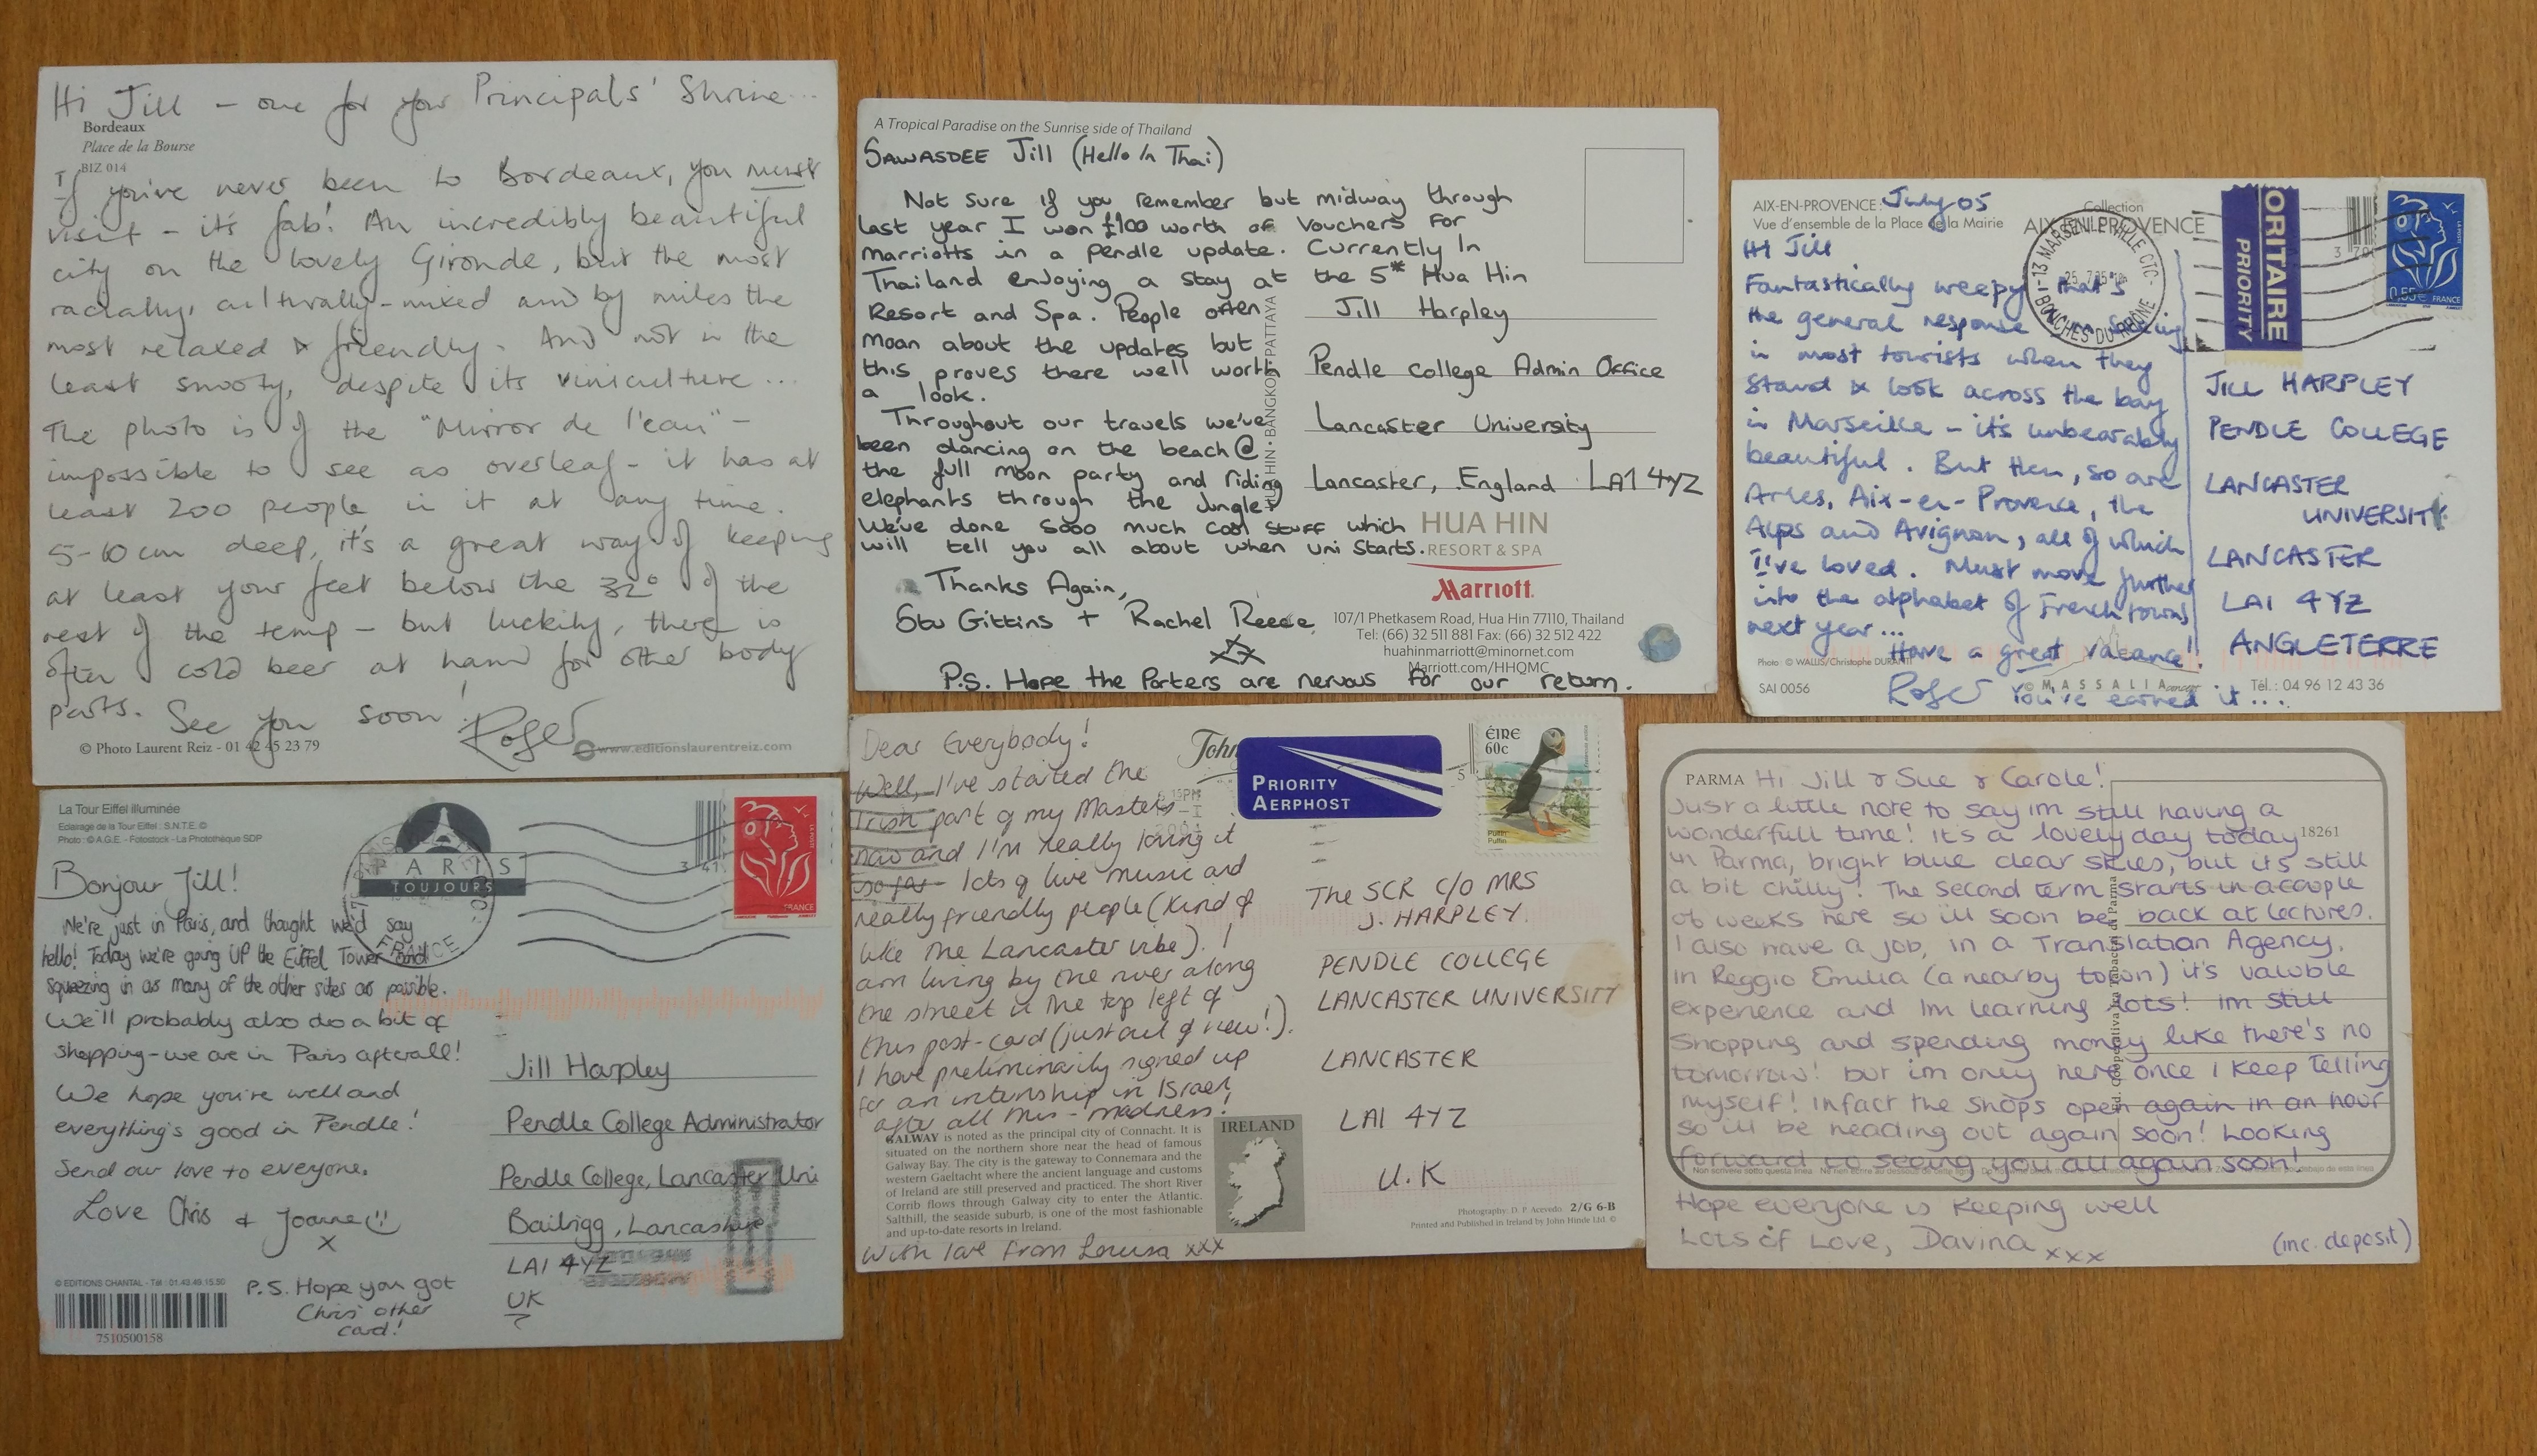 Hi Jill - one for your Principals' Shrine...
Bordeaux
Place de la Bourse
BIZ 014
If you've never been to Bordeaux, you must
visit - it's fab! An incredibly beautiful
city on the lovely Gironde, but the most
racially, culturally-mixed and by miles the
most relaxed & friendly. And not in the
least snooty, despite its viniculture...
The photo is of the "Mirror de l'eau" -
impossible to see as overleaf - it has at
least 200 people in it at any time.
5-10 cm deep, it's a great way of keeping
at least your feet below the 32° of the
rest of the temp - but luckily, there is
often cold beer at hand for other body
parts. See you soon!
Roger
© Photo Laurent Reiz - 01 42 45 23 79
www.editionslaurentreiz.com
A Tropical Paradise on the Sunrise side of Thailand
SAWASDEE Jill (Hello In Thai)
Not sure if you remember but midway through
last year I won £100 worth of vouchers for
marriotts in a Pendle update. Currently In
Thailand enjoying a stay at the 5* Hua Hin
Resort and Spa. People often
moan about the updates but
this proves there well worth
a look.
Throughout our travels we've
been dancing on the beach @
the full moon party and riding
elephants through the Jungle!
We've done sooo much cool stuff which
will tell you all about when uni starts.
Thanks Again,
Stu Gittins + Rachel Reece
xx
P.S. Hope the Porters are nervous for our return.
HUA HIN • BANGKOK • PATTAYA
Jill Harpley
Pendle College Admin Office
Lancaster University
Lancaster, England LA1 4YZ
HUA HIN
RESORT & SPA
Marriott
107/1 Phetkasem Road, Hua Hin 77110, Thailand
Tel: (66) 32 511 881 Fax: (66) 32 512 422
huahinmarriott@minornet.com
Marriott.com/HHQMC
AIX-EN-PROVENCE: July 05
Vue d'ensemble de la Place de la Mairie
Collection
AIX-EN-PROVENCE
Hi Jill
Fantastically weepy that's
the general response
in most tourists when they
stand & look across the bay
in Marseille - it's unbearably
beautiful. But then, so are
Arles, Aix-en-Provence, the
Alps and Avignon, all of which
I've loved. Must move further
into the alphabet of French towns
next year...
Have a great vacance!!
Roger You've earned it...
Photo: © WALLIS/Christophe DURANTI
SAI 0056
© MASSALIA concept
Tél.: 04 96 12 43 36
13 MARSEILLE VILLE CTC
BOUCHES DU RHONE
ORITAIRE
PRIORITY
0,55€ FRANCE
JILL HARPLEY
PENDLE COLLEGE
LANCASTER
UNIVERSITY
LANCASTER
LA1 4YZ
ANGLETERRE
La Tour Eiffel illuminée
Eclairage de la Tour Eiffel : S.N.T.E. ©
Photo : © A.G.E. - Fotostock - La Photothèque SDP
PARIS
TOUJOURS
FRANCE
FRANCE
Bonjour Jill!
We're just in Paris, and thought we'd say
hello! Today we're going UP the Eiffel Tower and
squeezing in as many of the other sites as possible.
We'll probably also do a bit of
shopping - we are in Paris afterall!
We hope you're well and
everything's good in Pendle!
Send our love to everyone.
Love Chris & Joanne
x
P.S. Hope you got
Chris' other
card!
© EDITIONS CHANTAL - Tél : 01.43.49.15.50
7510500158
Jill Harpley
Pendle College Administrator
Pendle College, Lancaster Uni
Bailrigg, Lancashire
LA1 4YZ
UK
Dear Everybody!
Well, I've started the
Irish part of my Masters
now and I'm really loving it
so far - lots of live music and
really friendly people (kind of
like the Lancaster vibe). I
am living by the river along
the street in the top left of
this post-card (just out of view!).
I have preliminarily signed up
for an internship in Israel
after all this - madness!
GALWAY is noted as the principal city of Connacht. It is
situated on the northern shore near the head of famous
Galway Bay. The city is the gateway to Connemara and the
western Gaeltacht where the ancient language and customs
of Ireland are still preserved and practiced. The short River
Corrib flows through Galway city to enter the Atlantic.
Salthill, the seaside suburb, is one of the most fashionable
and up-to-date resorts in Ireland.
With love from Louisa xxx
IRELAND
John
PRIORITY
AERPHOST
ÉIRE
60c
Puifín
Puffin
The SCR C/O MRS
J. HARPLEY
PENDLE COLLEGE
LANCASTER UNIVERSITY
LANCASTER
LA1 4YZ
U.K
Photography: D. P. Acevedo 2/G 6-B
Printed and Published in Ireland by John Hinde Ltd. ©
PARMA
Hi Jill & Sue & Carole!
Just a little note to say im still having a
wonderfull time! It's a lovely day today
18261
in Parma, bright blue clear skies, but it's still
a bit chilly! The second term starts in a couple
of weeks here so ill soon be back at lectures.
I also have a job, in a Translation Agency,
in Reggio Emilia (a nearby town) it's valuble
experience and Im learning lots! Im still
shopping and spending money like there's no
tomorrow! but im only here once I keep telling
myself! Infact the shops open again in an hour
so ill be heading out again soon! Looking
forward to seeing you all again soon!
Hope everyone is keeping well
Lots of Love, Davina xxx
(inc. deposit)